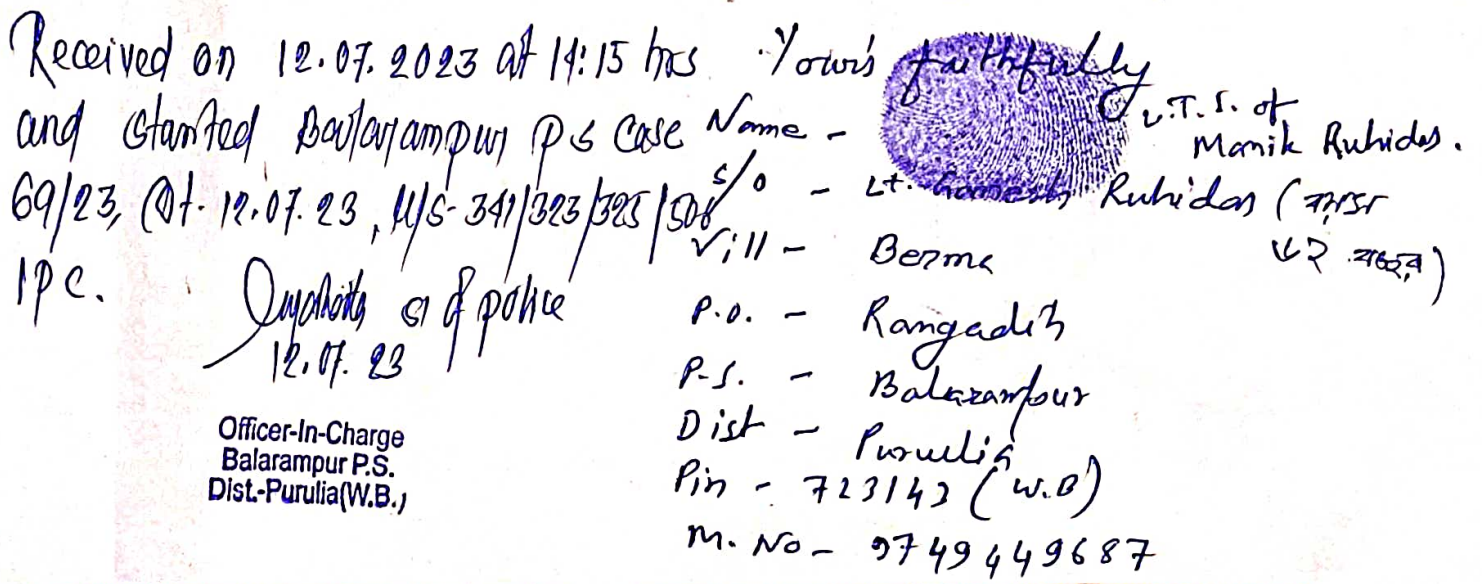 Received on 12.07.2023 at 14:15 hrs
and started Balarampur PS Case
69/23, Dt. 12.07.23, U/S- 341/323/325/506
IPC.
SI of police
12.07.23
Officer-In-Charge
Balarampur P.S.
Dist.-Purulia(W.B.)
Yours faithfully
L.T.I. of
Manik Ruhidas.
Name -
s/o - Lt. Ganesh Ruhidas
Vill - Berma
P.O. - Rangadih
P.S. - Balarampur
Dist - Purulia
Pin - 723143 (W.B)
M. No - 9749449687